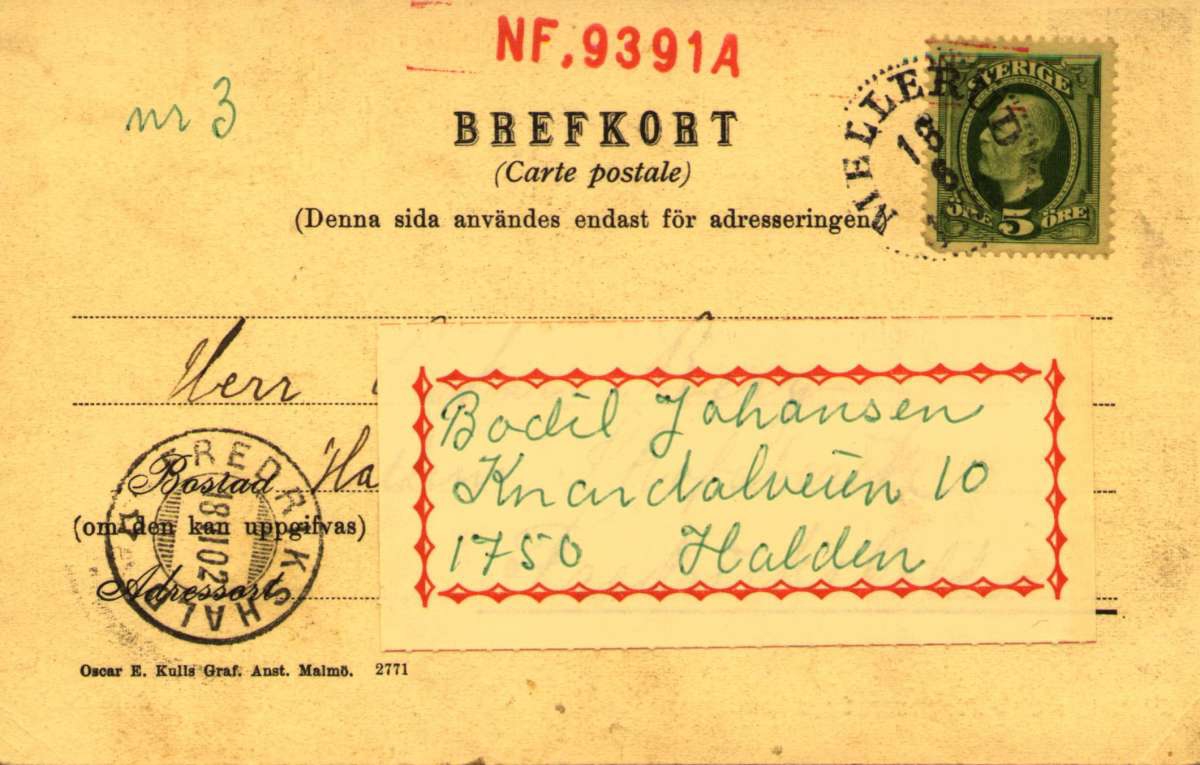 NF.9391A
nr 3
BREFKORT
(Carte postale)
(Denna sida användes endast för adresseringen
MELLERUD
18
SVERIGE
ÖRE 5 ÖRE
Herr
Bodil Johansen
Knardalveien 10
1750 Halden
Bostad Ha
(om den kan uppgifvas)
Adressort
FREDRIKSHALD
Oscar E. Kulls Graf. Anst. Malmö. 2771